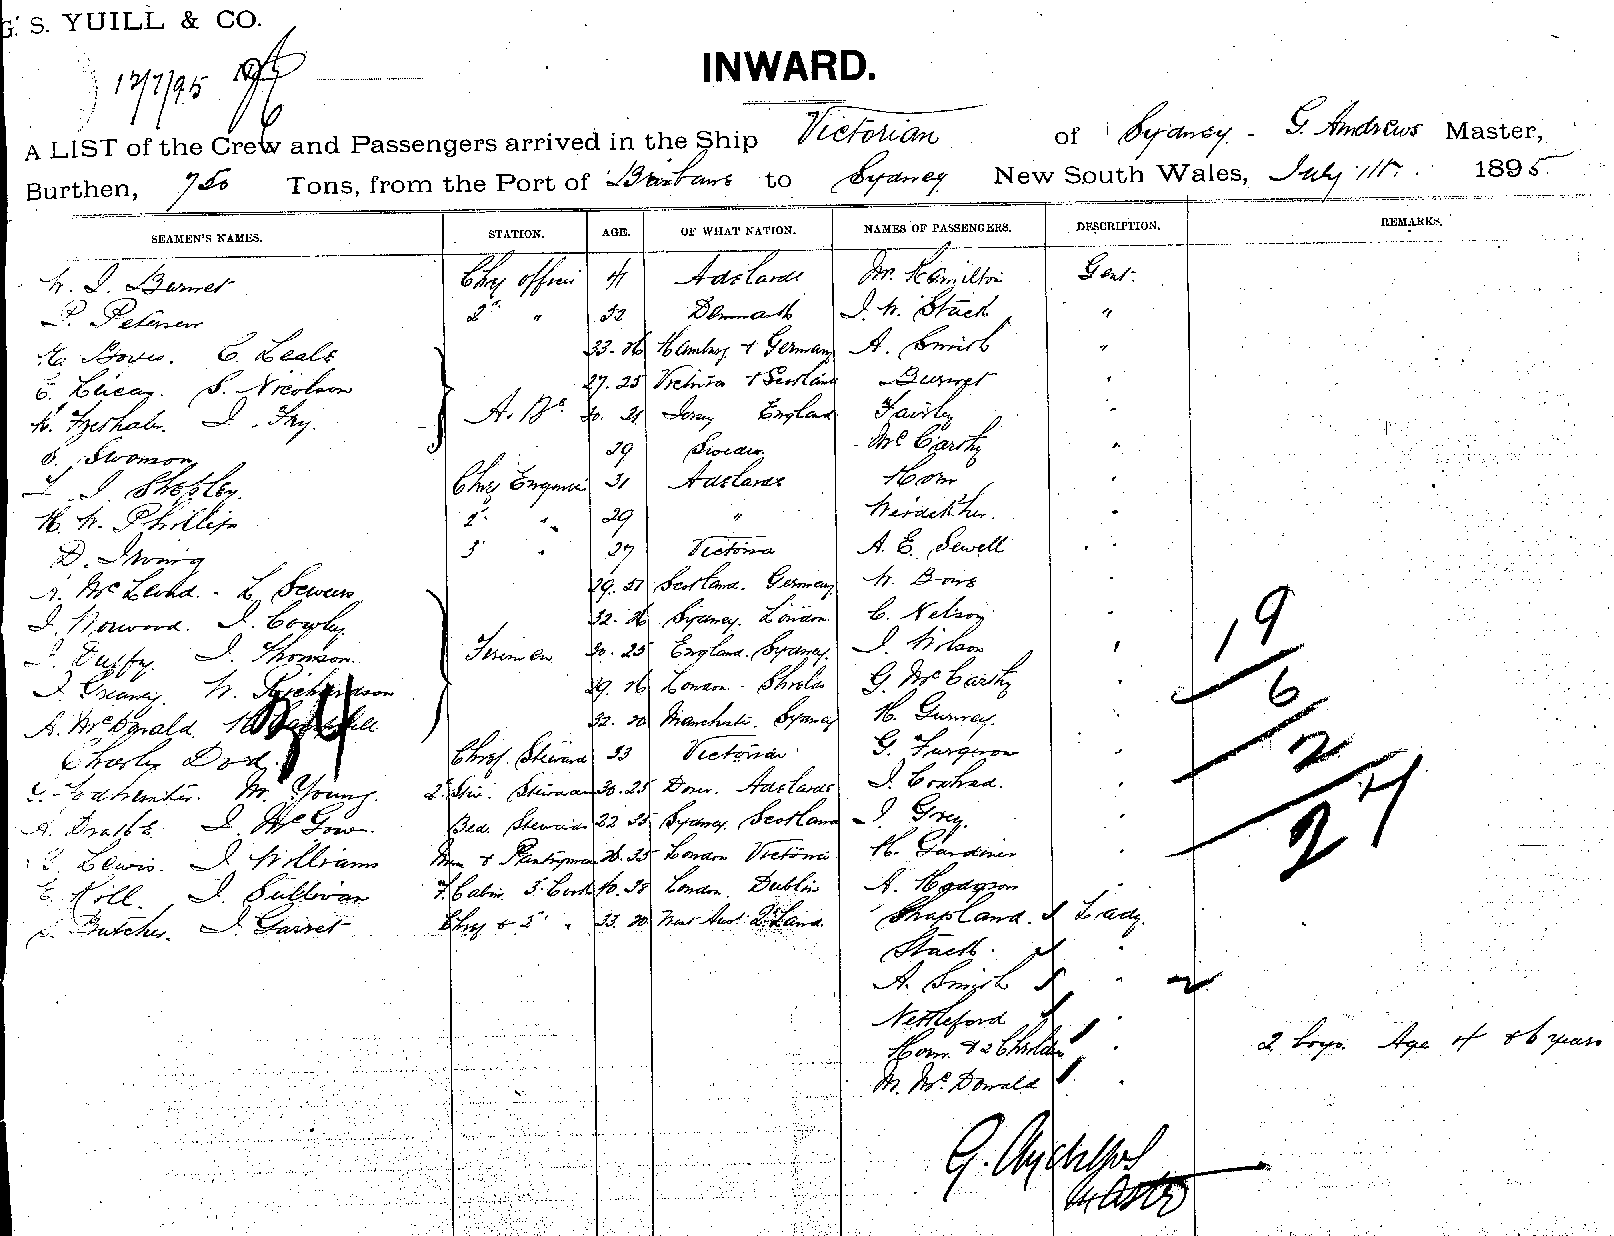 G. S. YUILL & CO.
12/7/95
INWARD.
A LIST of the Crew and Passengers arrived in the Ship Victorian of Sydney - G. Andrews Master,
Burthen, 750 Tons, from the Port of Brisbane to Sydney New South Wales, July 11th 1895
SEAMEN'S NAMES. STATION. AGE. OF WHAT NATION. NAMES OF PASSENGERS. DESCRIPTION. REMARKS.
W. J. Burnet Chief officer 41 Adelaide Mr. Hamilton Gent.
P. Petersen 2nd " 32 Denmark J. W. Stack "
C. Leale 33. 26 Hamburg & Germany A. Smith "
S. Nicolson 27. 25 Victoria & Scotland Burnet "
J. Fry. A. Bs. 30. 21 England Fairley "
Swanson 29 Sweden McCarthy "
J. Shepley. Chief Engineer 31 Adelaide Horn "
H. W. Phillips 2nd " 29 " "
D. Irwing 3rd " 27 Victoria A. E. Sewell "
29. 51 Scotland. Germany W. Bowe "
J. Norwood. J. Cowley 32. 26 Sydney. London C. Nelson "
Duffy. J. Thomson. Firemen 30. 25 England. Sydney. J. Wilson "
J. Greaney. W. Richardson 29. 26 London - Shields G. McCarthy "
A. McDonald 32. 30 Manchester. Sydney H. Gurney. "
Charley Dod. Chief Steward 33 Victoria G. Furgeson "
M. Young. 2nd Stewardess 30. 25 Dover. Adelaide J. Conrad. "
J. McGow. Bed. Stewards 22 25 Sydney. Scotland J. Grey. "
Lewis. J. Williams Mess & Pantryman 26. 35 London Victoria H. Gardiner "
J. Sullivan F. Cabin S. Cook 40. 38 London. Dublin A. Hodgson "
Butcher. J. Garret Chief & 2nd " 33. 20 West Aust. Q. Land. Shapland. Lady.
Stack. "
A. Smith "
Nettleford "
Horn. & 2 Children " 2 boys. Age 4 & 6 years
M. McDonald "
19
6
2
27
G. Andrews
Master